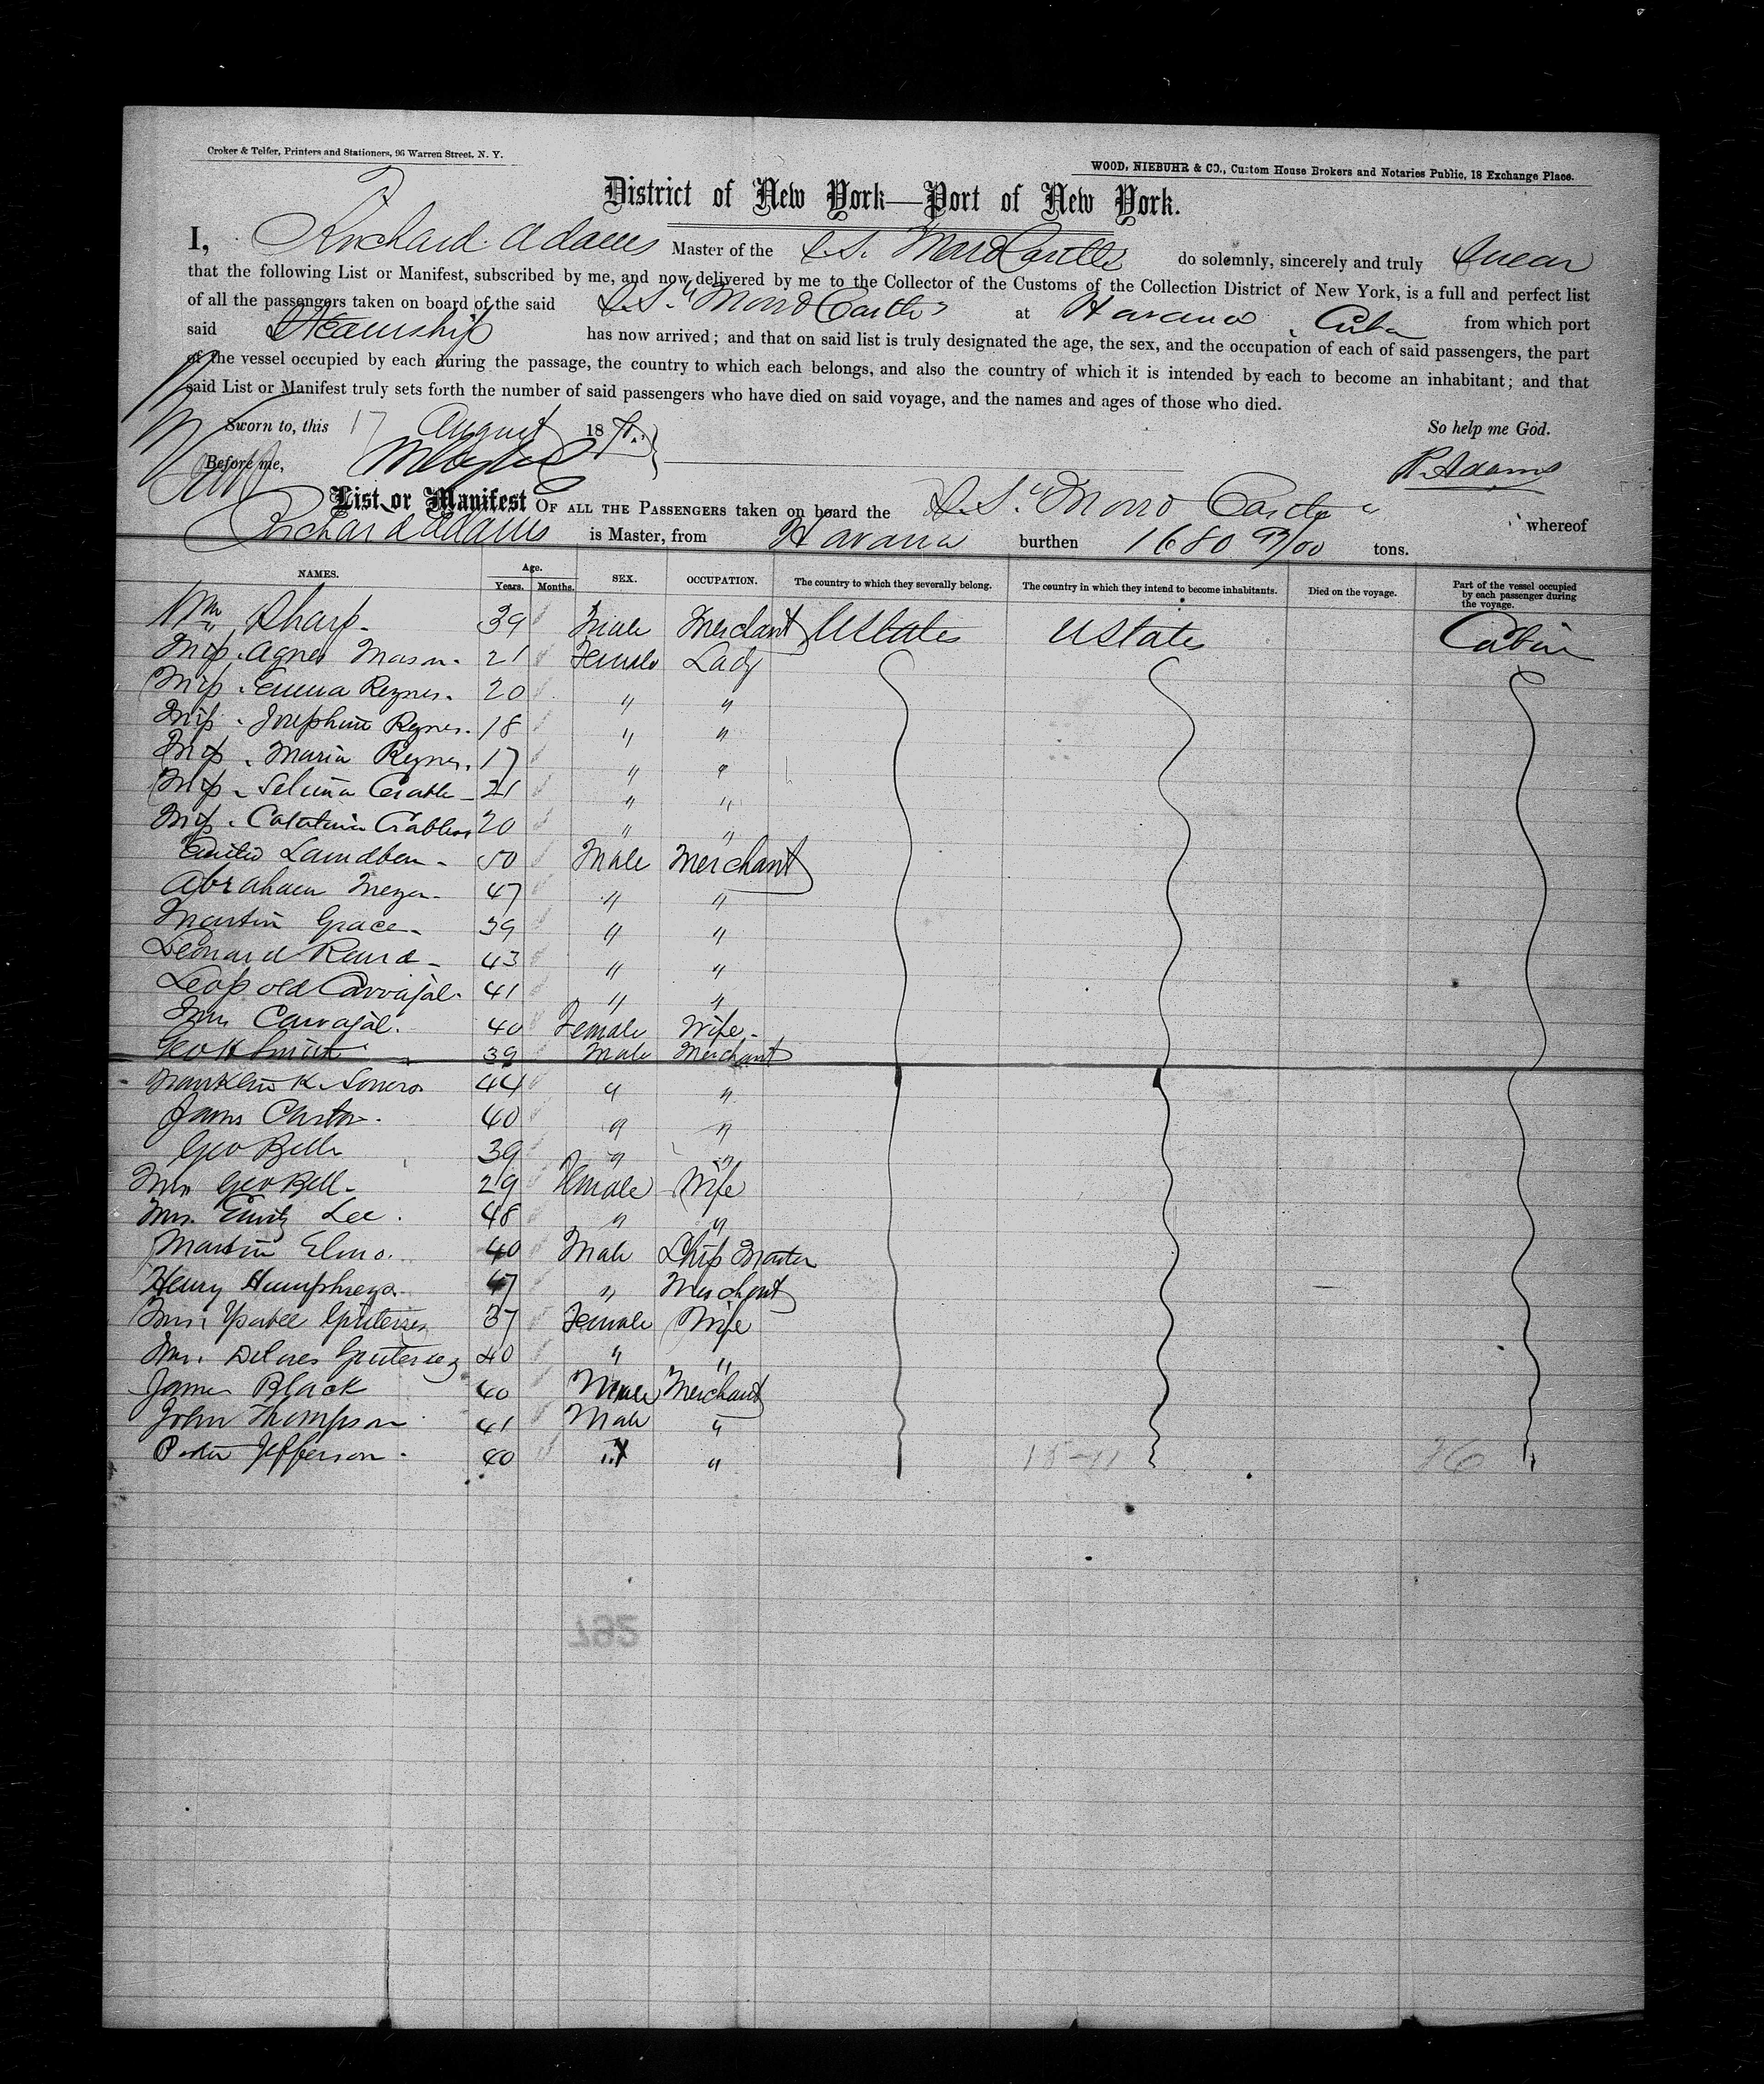 Croker & Telfer, Printers and Stationers, 96 Warren Street, N. Y.
WOOD, NIEBUHR & CO., Custom House Brokers and Notaries Public, 18 Exchange Place.
District of New York—Port of New York.
I, Richard Adams Master of the S.S. Morro Castle do solemnly, sincerely and truly swear
that the following List or Manifest, subscribed by me, and now delivered by me to the Collector of the Customs of the Collection District of New York, is a full and perfect list
of all the passengers taken on board of the said S.S. "Morro Castle" at Havana, Cuba from which port
said Steamship has now arrived; and that on said list is truly designated the age, the sex, and the occupation of each of said passengers, the part
of the vessel occupied by each during the passage, the country to which each belongs, and also the country of which it is intended by each to become an inhabitant; and that
said List or Manifest truly sets forth the number of said passengers who have died on said voyage, and the names and ages of those who died.
Sworn to, this 17 August 18 So help me God.
Before me, R. Adams
List or Manifest OF ALL THE PASSENGERS taken on board the S.S. "Morro Castle" whereof
Richard Adams is Master, from Havana burthen 1680 93/00 tons.
NAMES. Age. Years. Months. SEX. OCCUPATION. The country to which they severally belong. The country in which they intend to become inhabitants. Died on the voyage. Part of the vessel occupied by each passenger during the voyage.
Wm Sharp 39 Male Merchant UStates UStates Cabin
Miss Agnes Mason 21 Female Lady
Miss Emma Reynes 20 " "
Miss Josephine Reynes 18 " "
Miss Maria Reynes 17 " "
Miss 21 " "
Miss 20 " "
50 Male Merchant
Abraham Meyer 47 " "
Martin Grace 39 " "
Leonard 43 " "
Leopold Carvajal 41 " "
Mrs Carvajal 40 Female Wife
Geo H Smith 39 Male Merchant
Franklin K. 44 " "
James 40 " "
Geo Bell 39 " "
Mrs Geo Bell 29 Female Wife
Mrs. Lee 48 " "
Martin Elmo. 40 Male Ship Master
Henry Humphreys 47 " Merchant
Mrs. Ysabel 37 Female Wife
Mrs. Delores 40 " "
James Black 40 Male Merchant
John Thompson 41 Male "
Peter Jefferson 40 " "
26